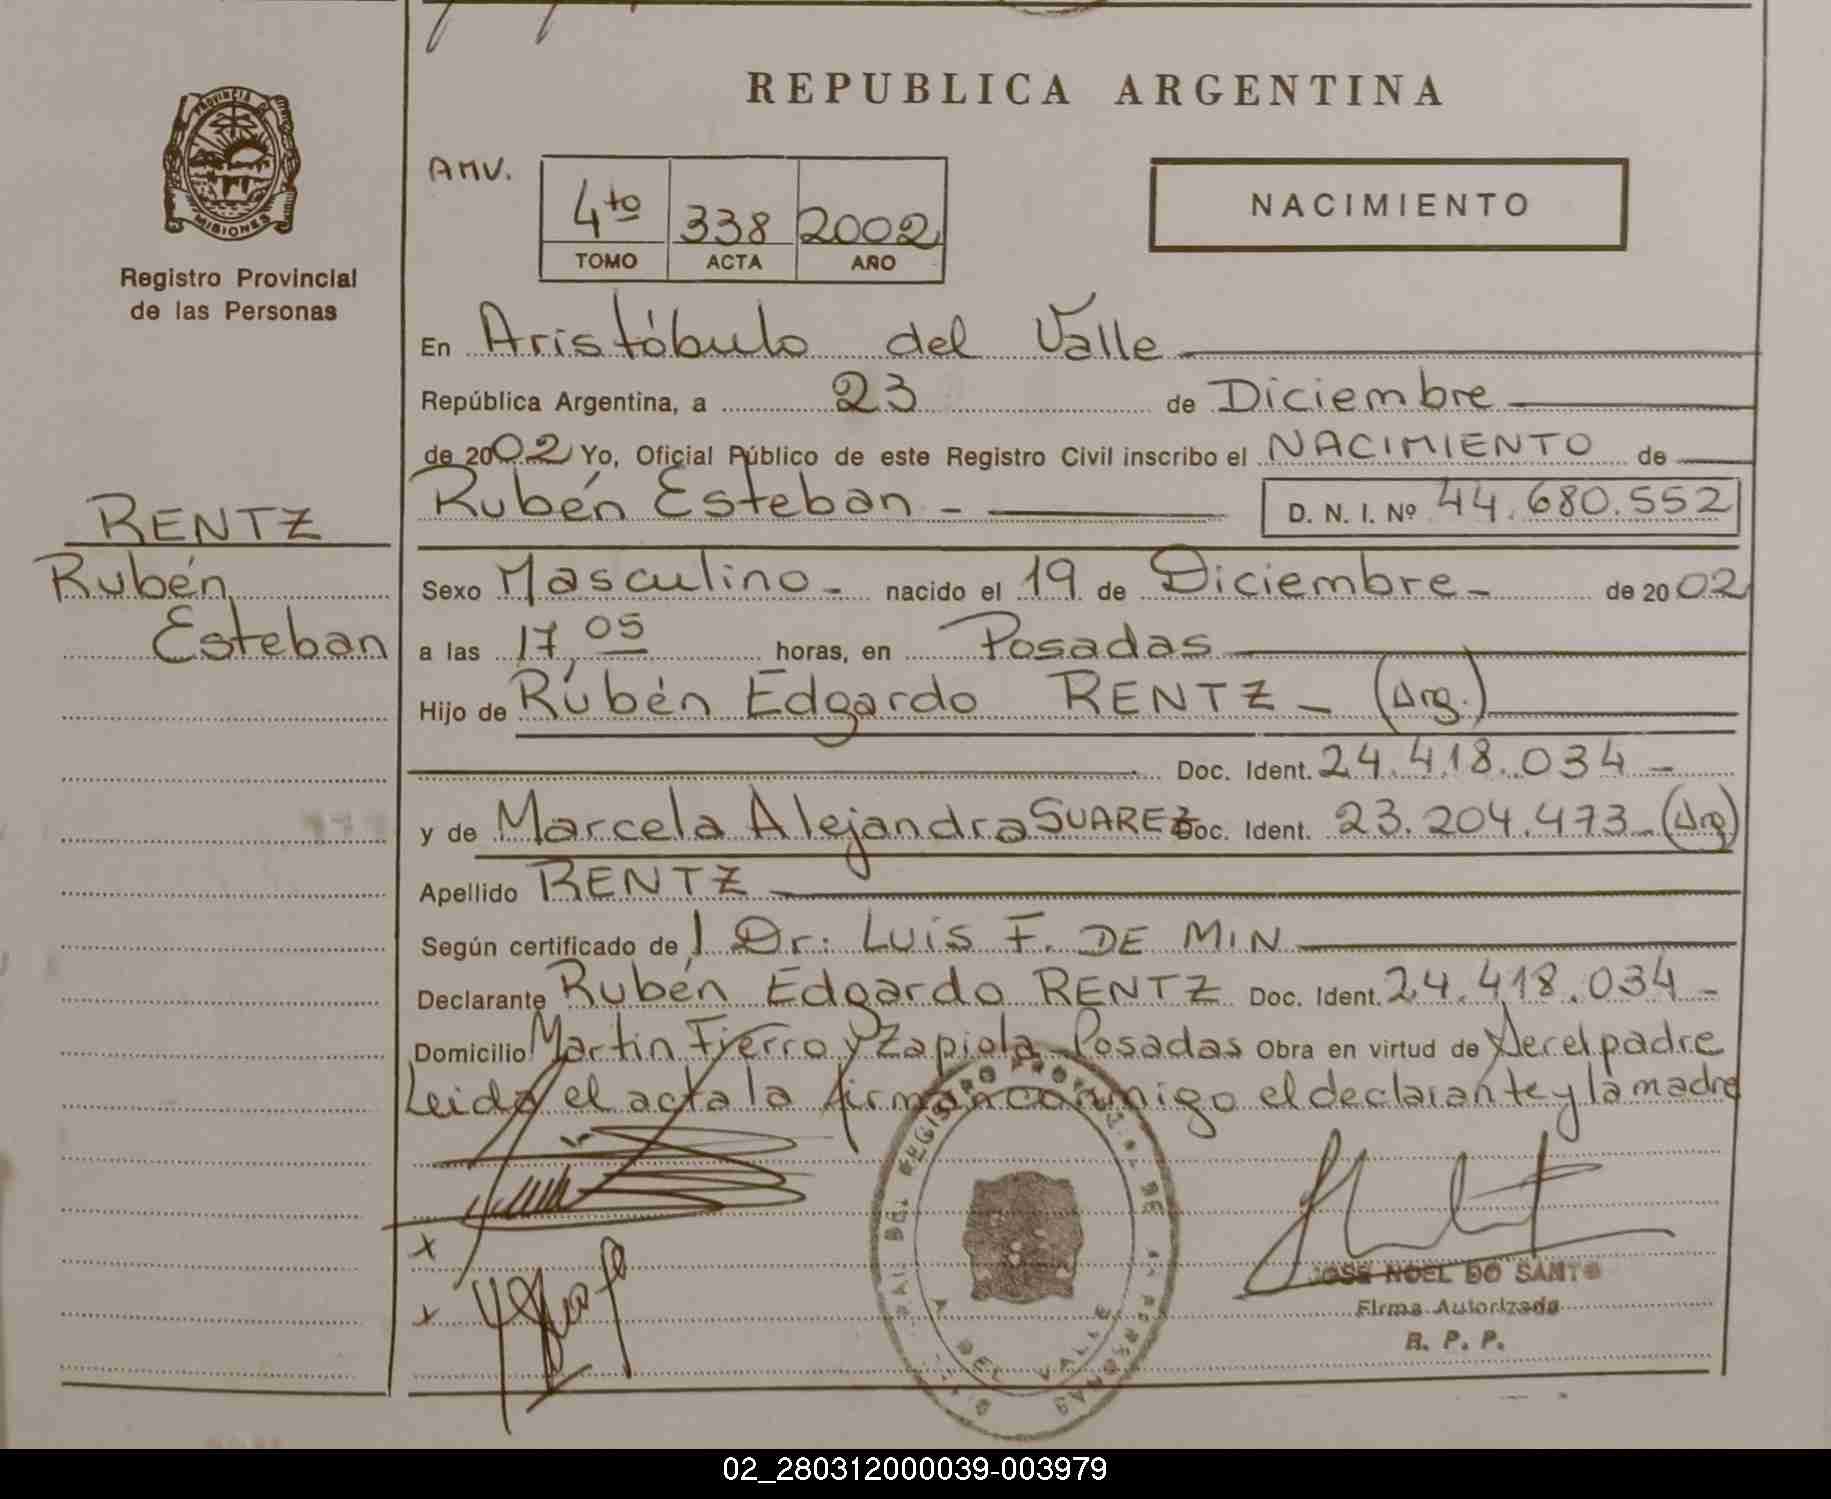 PROVINCIA DE
MISIONES
Registro Provincial
de las Personas
RENTZ
Rubén
Esteban
REPUBLICA ARGENTINA
AMV.
4to 338 2002
TOMO ACTA AÑO
NACIMIENTO
En Aristóbulo del Valle
República Argentina, a 23 de Diciembre
de 2002 Yo, Oficial Público de este Registro Civil inscribo el NACIMIENTO de
Rubén Esteban - D. N. I. Nº 44.680.552
Sexo Masculino - nacido el 19 de Diciembre - de 2002
a las 17,05 horas, en Posadas
Hijo de Rubén Edgardo RENTZ - (Arg.)
Doc. Ident. 24.418.034 -
y de Marcela Alejandra SUAREZ Doc. Ident. 23.204.473 - (Arg)
Apellido RENTZ
Según certificado de Dr: LUIS F. DE MIN
Declarante Rubén Edgardo RENTZ Doc. Ident. 24.418.034 -
Domicilio Martin Fierro y Zapiola - Posadas Obra en virtud de ser el padre
Leida el acta la firman conmigo el declarante y la madre
REGISTRO PROVINCIAL DE LAS PERSONAS
A DEL VALLE
X
X
JOSE NOEL DO SANTO
Firma Autorizada
R. P. P.
02_280312000039-003979